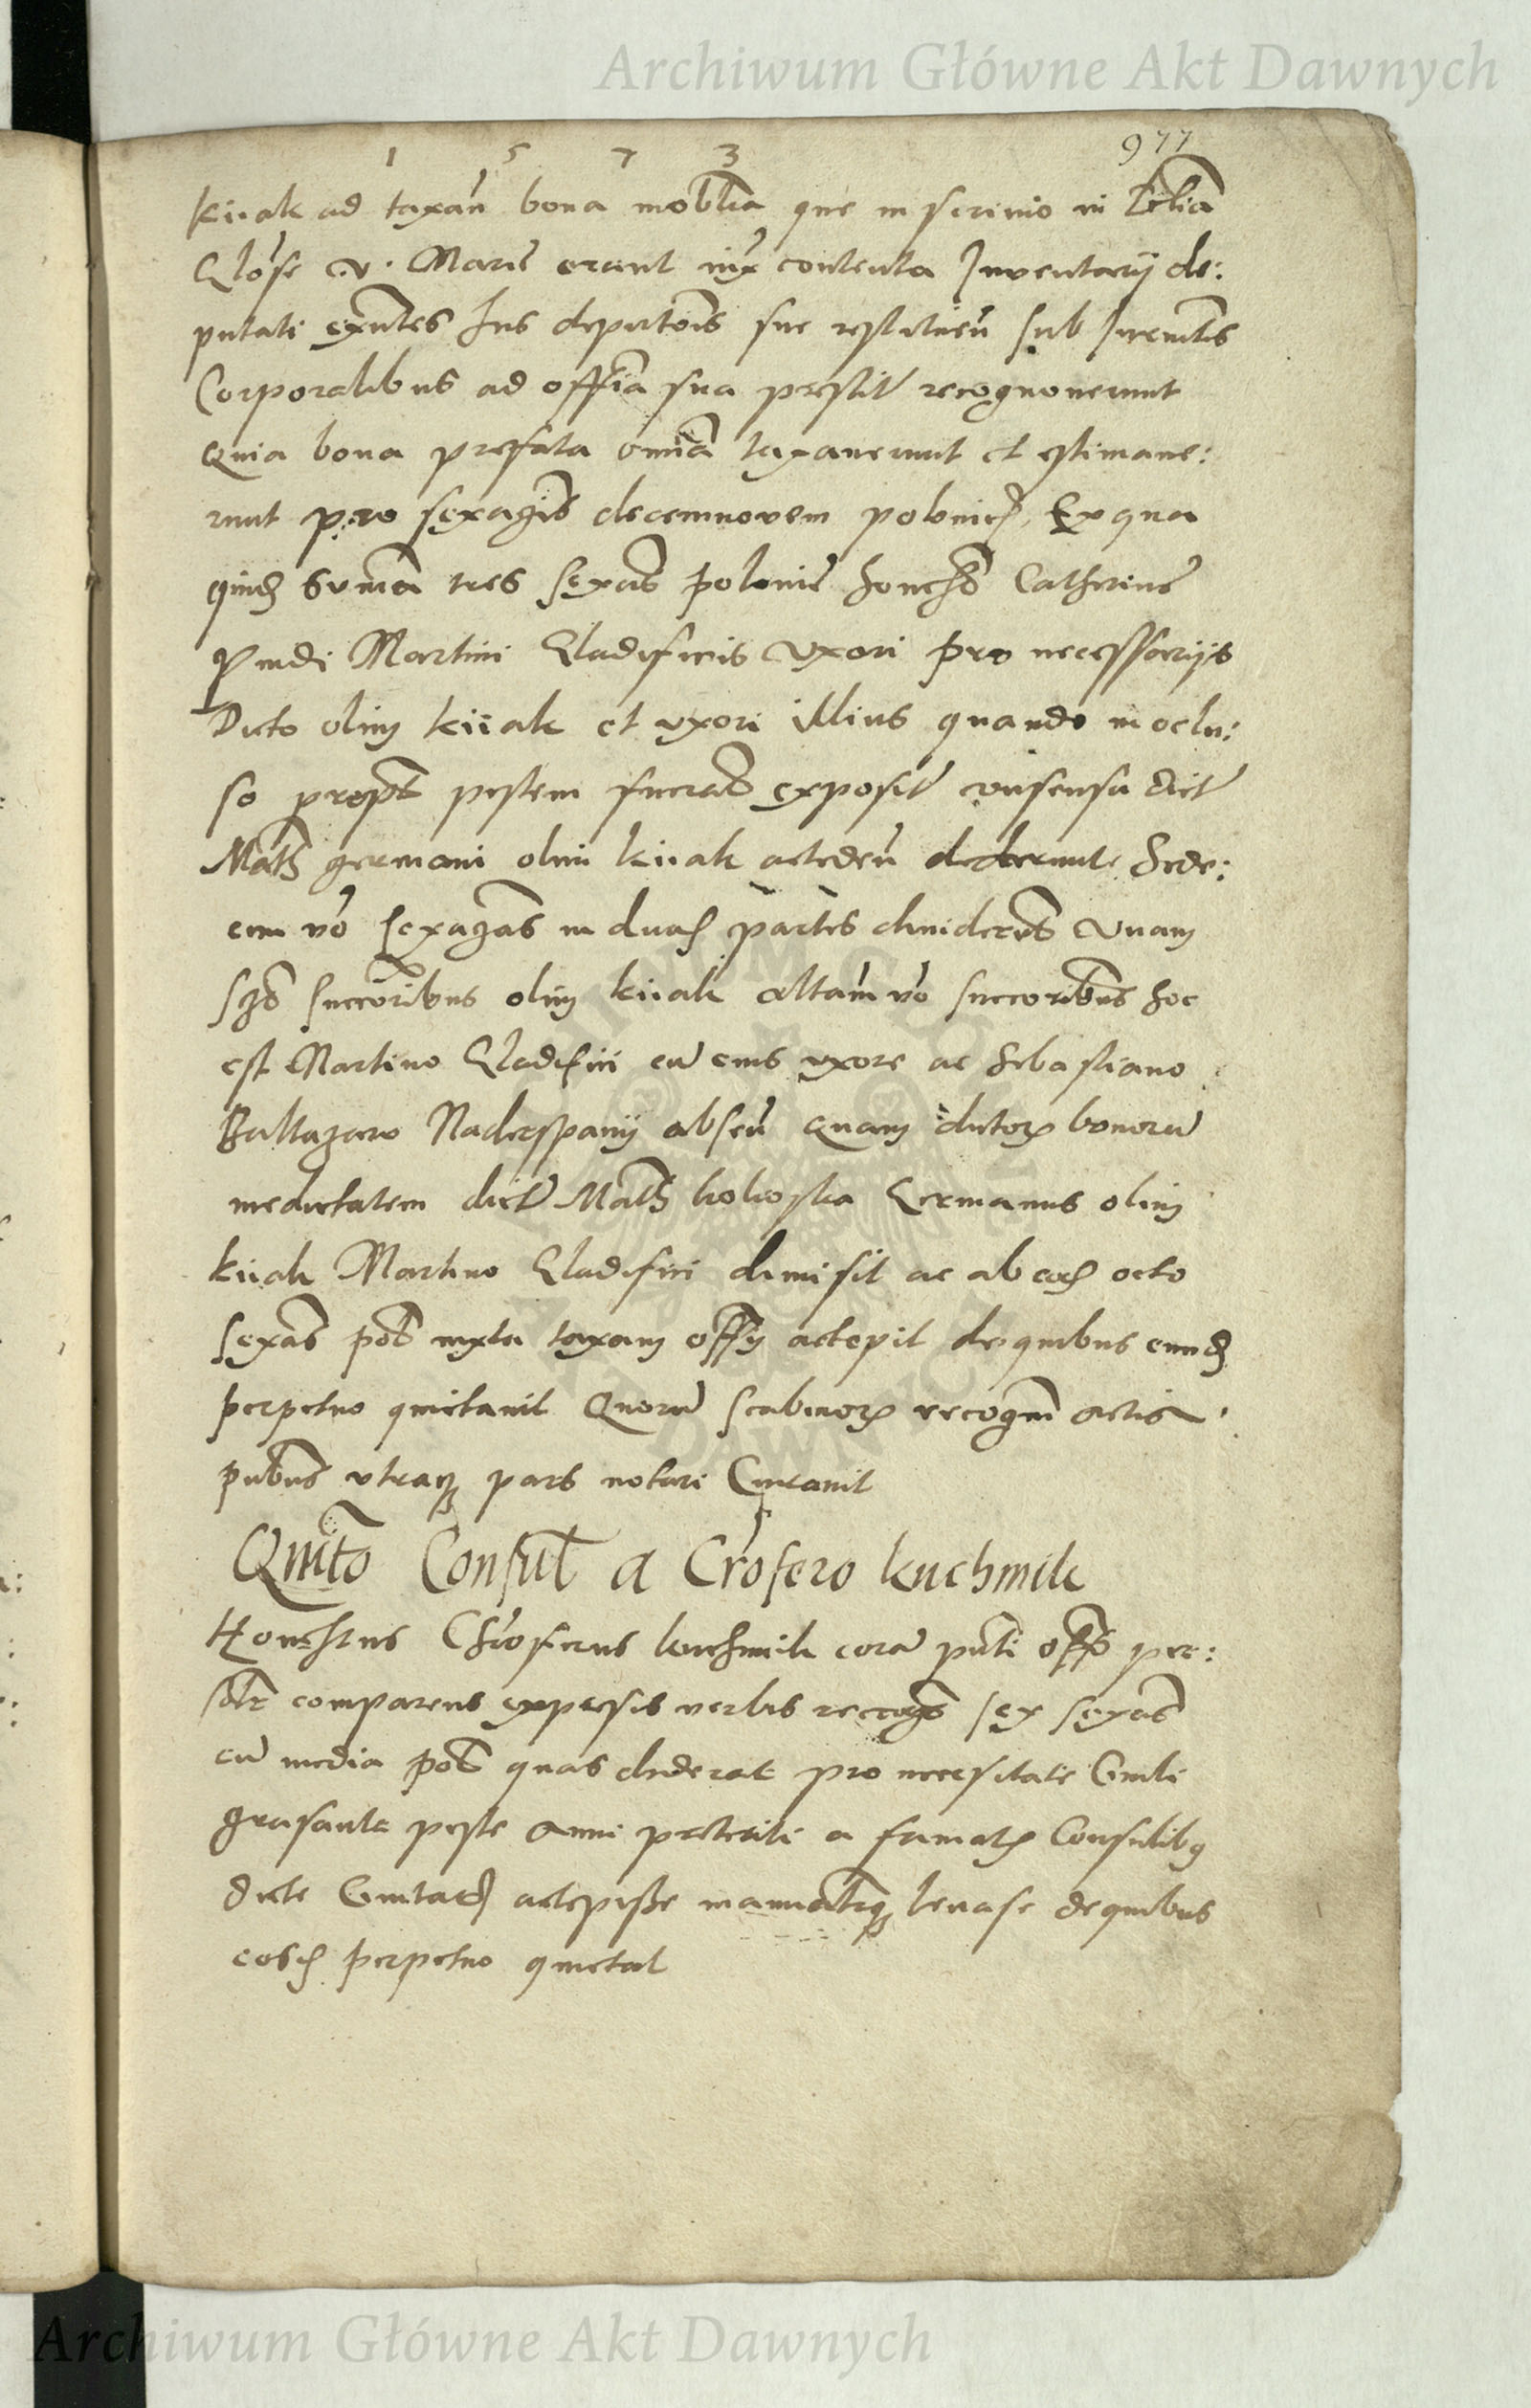 Archiwum Główne Akt Dawnych
1 5 7 3
977
kiiak ad taxan bona moblia que in scrinio in Ecclia
Glose v. Marie erant iux contenta Inventarij de:
putati exntes Jus deputõis sue restitueñ sub Jurentis
Corporalibus ad offia sua prestit recognouerunt
Quia bona prefata omnia taxauerunt et estimaue:
runt pro sexagis decemnovem polonic, Ex qua
quid summa tres sexas polonie honeste Catherine
Martini Gladificis vxori pro necessarijs
Dicto olim kiiak et vxori illius quando in oclu:
so propt pestem fuerat exposit consensu dict
Math germani olim kiiak accedeñ dederunt Sede:
cim vo sexagas in duas partes diuideñs Vnam
succoribus olim kiiak altam vo succoribus hoc
est Martino Gladifici cu eius vxore ac Sebastiano
Baltazaro Naderspanij abseñ Quam dictor bonoru
medietatem dict Math kokoska Germanus olim
kiiak Martino Gladifici dimisit ac ab eod octo
sexas pol iuxta taxam offij accepit de quibus eund
perpetuo quietauit Quoru scabinor recogni actis
publius vtraq pars notari Curauit
Quitto Consul a Crosero kuchmik
Honestus Chrosferus kuchmik coram pnti offo per:
solr comparens expressis verbis recogs sex sexas
cu media pol quas dederat pro necessitate Ciuili
grasante peste Anni preteriti a famat Consulibus
dicte Ciuitatis accepisse manualitq leuasse de quibus
eosd perpetuo quietat
Archiwum Główne Akt Dawnych